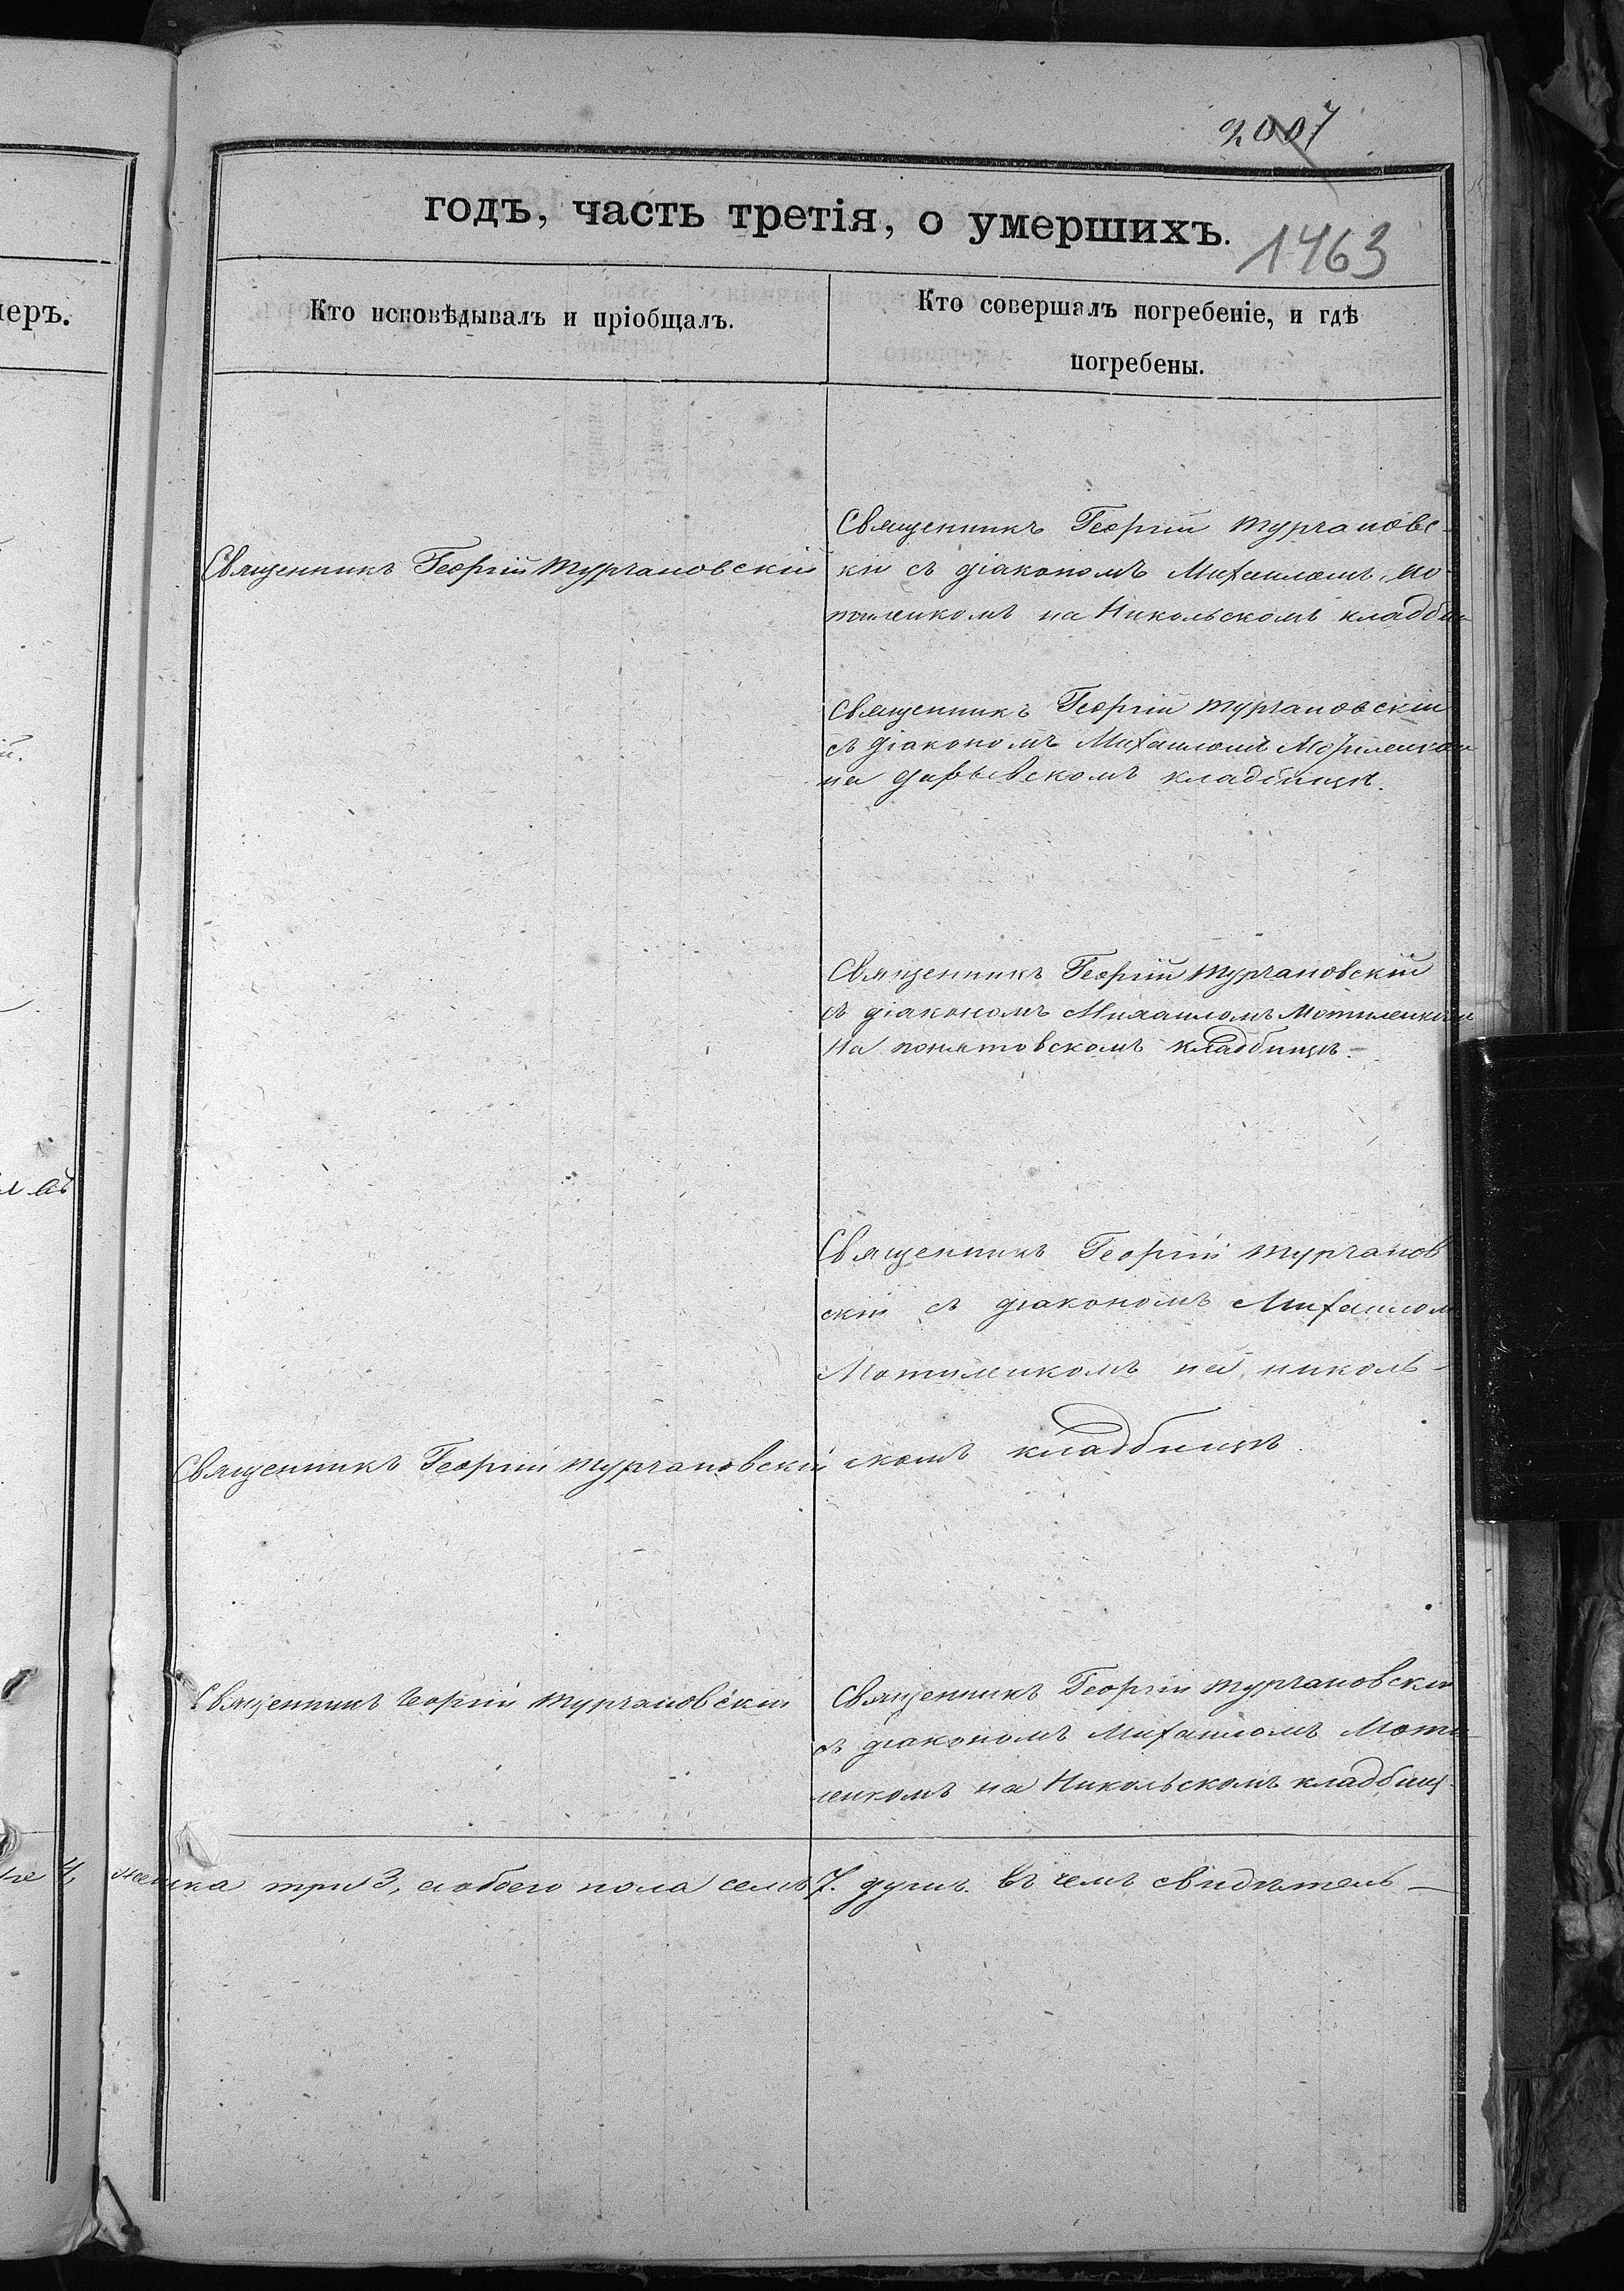 2007
годъ, часть третія, о умершихъ.
1463
меръ.
Кто исповѣдывалъ и пріобщалъ.
Кто совершалъ погребеніе, и гдѣ
погребены.
Священникъ Георгій Турчановскій
Священникъ Георгій Турчановс-
кій съ діакономъ Михаиломъ Мо-
тиленкомъ на Никольскомъ кладби-
Священникъ Георгій Турчановскій
съ діакономъ Михаиломъ Мотиленком
на кладбищѣ.
Священникъ Георгій Турчановскій
съ діакономъ Михаиломъ Мотиленком
на понятовскомъ кладбищѣ.
Священникъ Георгій Турчанов
скій съ діакономъ Михаилом
Мотиленкомъ на николь-
скомъ кладбищѣ.
Священникъ Георгій Турчановскій
Священникъ Георгій Турчановскій
Священникъ Георгій Турчановскій
съ діакономъ Михаиломъ Моти
ленкомъ на Никольскомъ кладбищ-
4, женска три 3, а обоего пола семь 7. душъ. въ чемъ свидѣтель-